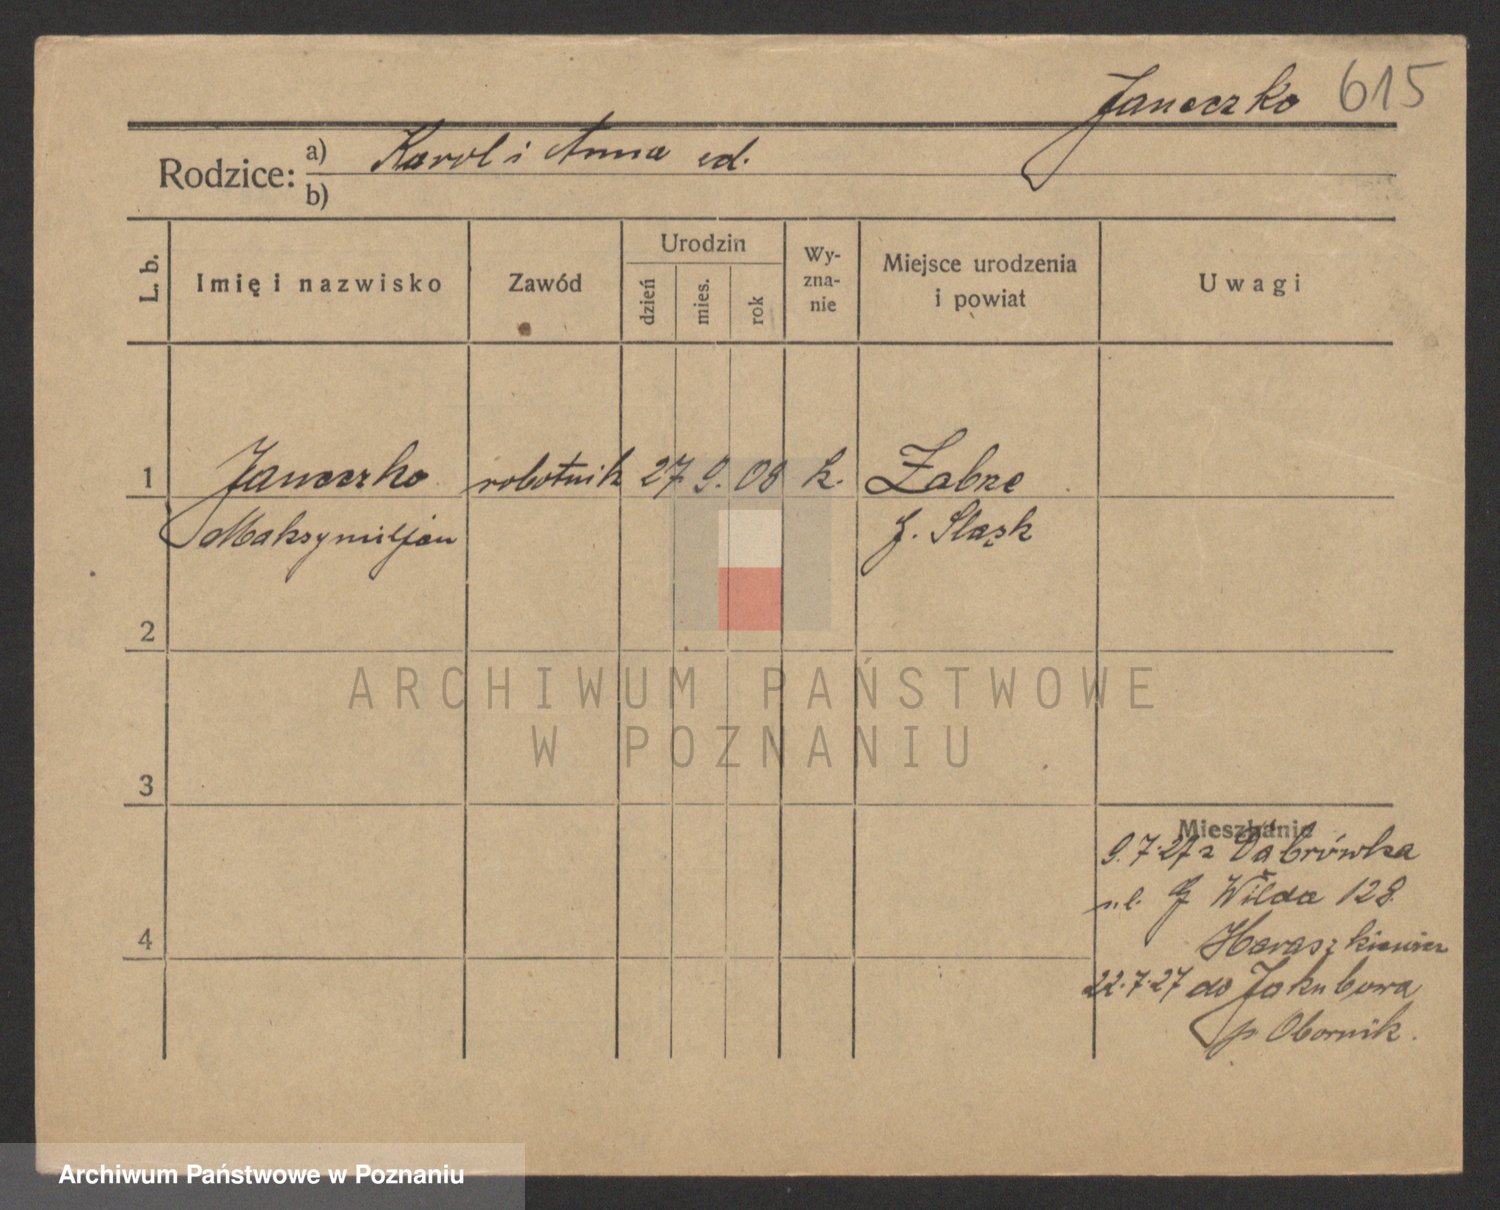 Janeczko 615
Rodzice: a) Karol i Anna
b)
L. b. Imię i nazwisko Zawód Urodzin dzień mies. rok Wy-zna-nie Miejsce urodzenia i powiat Uwagi
1 Janeczko robotnik 27 9. 08 k. Zabrze
Maksymiljan G. Śląsk
2
ARCHIWUM PAŃSTWOWE
W POZNANIU
3
Mieszkanie
9.7.27 z Dąbrówka
ul. G Wilda 128
4 Haraszkiewicz
22.7.27 do Jakubowa
p Obornik.
Archiwum Państwowe w Poznaniu